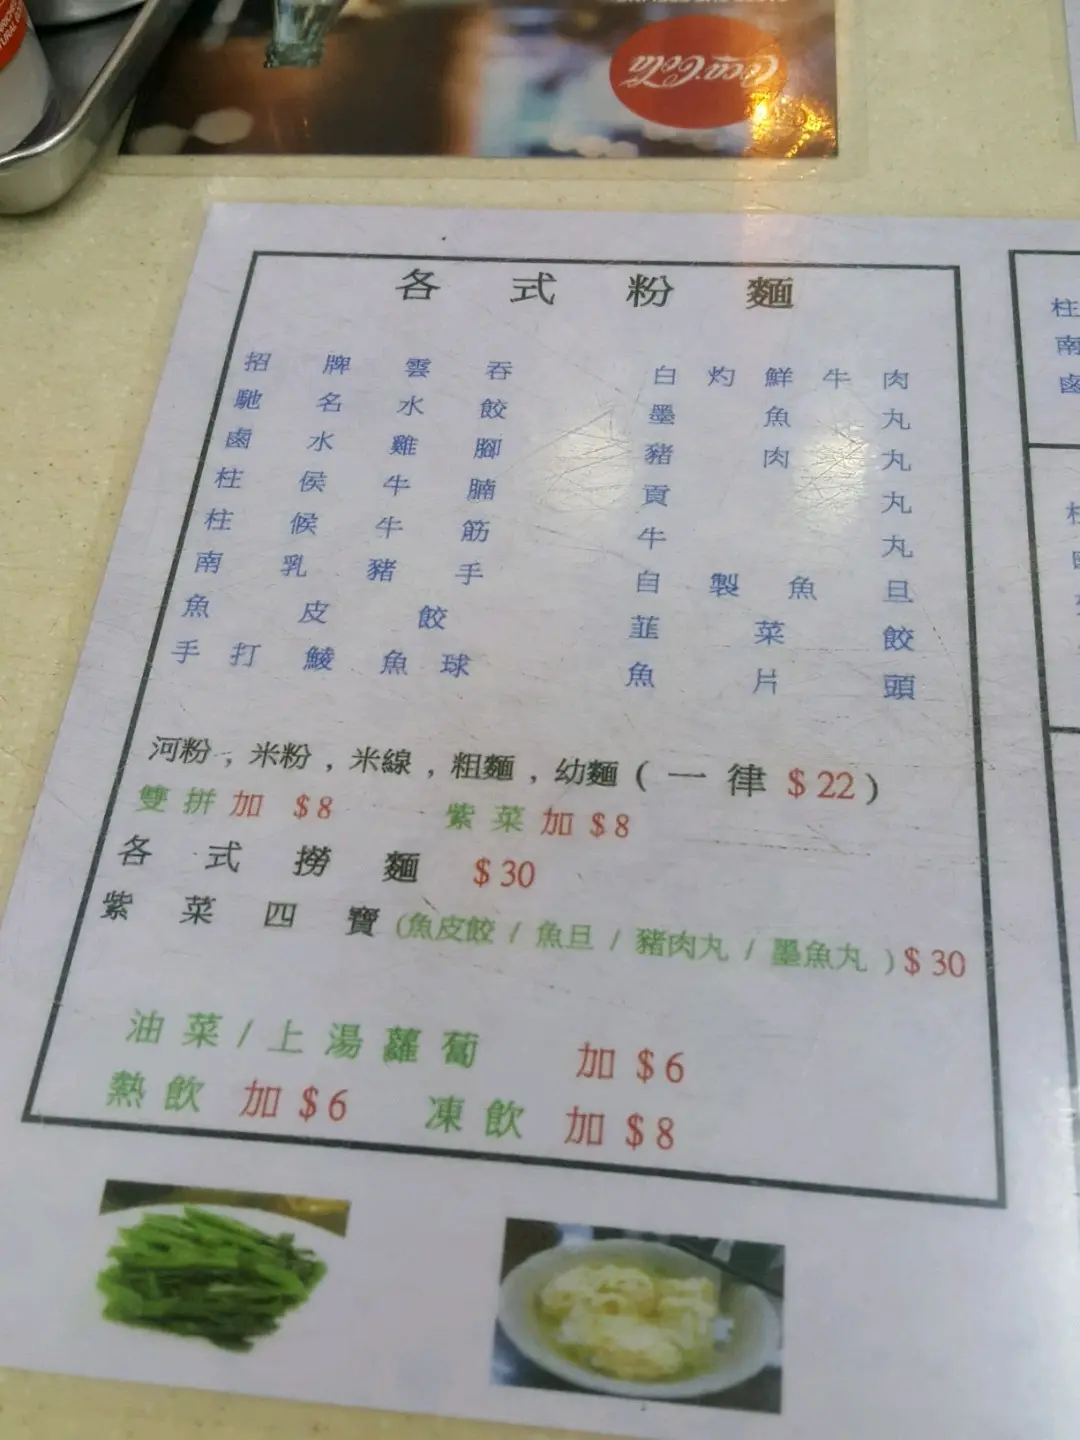 Coca-Cola
各式粉麵
招牌雲吞
馳名水餃
鹵水雞腳
柱侯牛腩
柱候牛筋
南乳豬手
魚皮餃
手打鯪魚球
白灼鮮牛肉
墨魚丸
豬肉丸
貢丸
牛丸
自製魚旦
韮菜餃
魚片頭
河粉，米粉，米線，粗麵，幼麵(一律$22)
雙拼加 $8 紫菜加$8
各式撈麵 $30
紫菜四寶(魚皮餃/魚旦/豬肉丸/墨魚丸)$30
油菜/上湯蘿蔔 加$6
熱飲 加$6 凍飲 加$8
柱
南
鹵